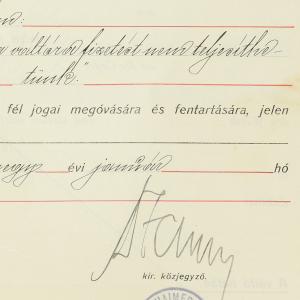 a váltóra fizetést nem teljesithe-
tünk."
fél jogai megóvására és fentartására, jelen
évi január hó
kir. közjegyző.